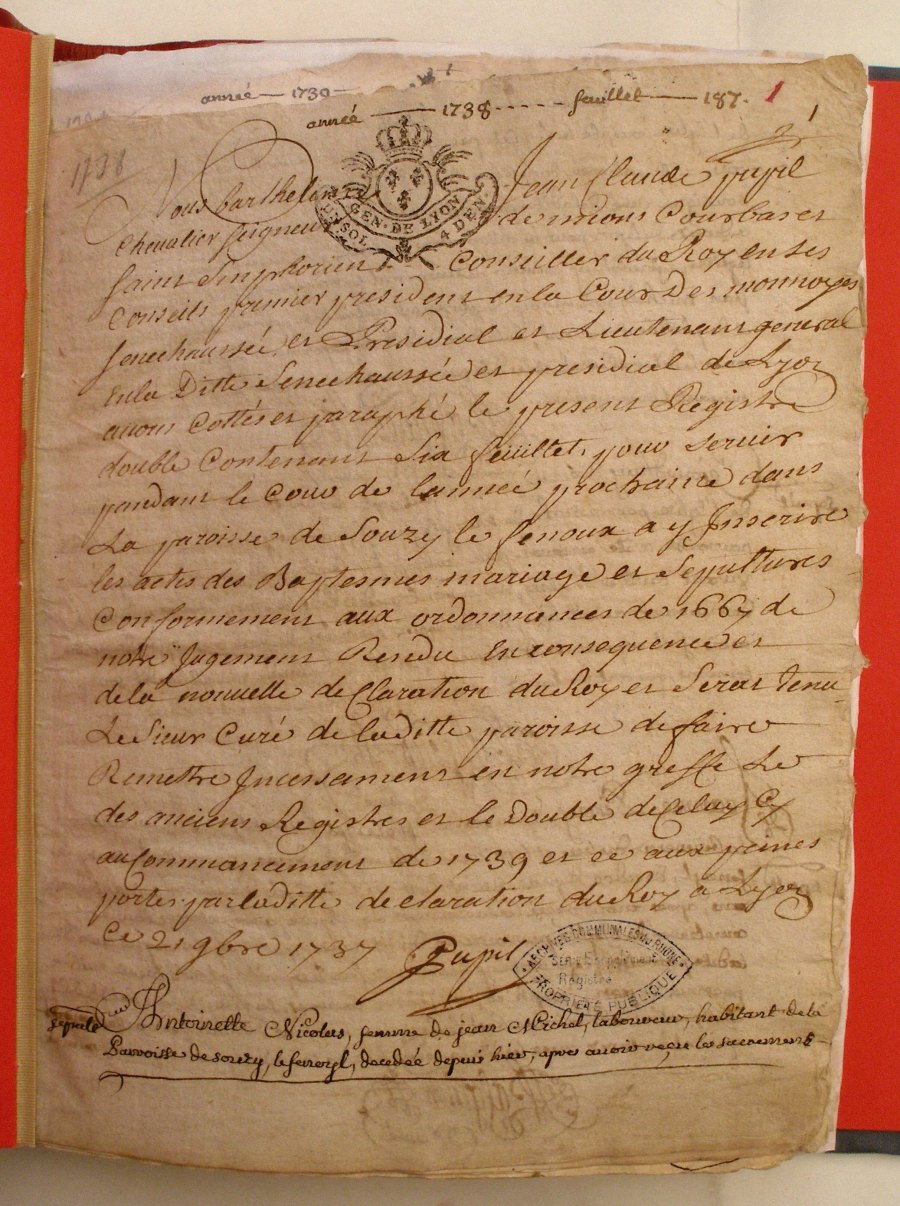 année — 1739 —
année — 1738 - - - - feuillet — 187. 1
1
1738
GEN. DE LYON
SOL 4 DEN
Nous barthelemy Jean Claude pupil
Chevalier seigneur de mions Courbas et
saint simphorien Conseiller du Roy en ses
Conseils premier president en la Cour Des monnoyes
senechaussée et Presidial et Lieutenant general
en la Ditte Senechaussée et presidial de Lyon
avons Cottés et paraphé le present Registre
double Contenant Six feüillet, pour servir
pandant le Cour de lannée prochaine dans
La paroisse de Souzy le a y Inscrire
les actes des Baptesmes mariage et Sepultures
Conformement aux ordonnances de 1667 de
notre Jugement Rendu En consequence et
de la nouvelle deClaration du Roy et Serat tenu
Le Sieur Curé de laditte paroisse de faire
Remettre Incessament en notre greffe Le
des anciens Registres et le Double de Celuy Cy
au Commancement de 1739 et ce aux peines
portes par laditte declaration du Roy a Lyon
Ce 21 9bre 1737 Pupil
ARCHIVES COMMUNALES DU RHONE
Registre
PROPRIÉTÉ PUBLIQUE
Antoinette Nicolas, femme de jean Michel, laboureur, habitant de la
Parroisse de souzy, decedée depuis hier, apres avoir reçu les sacements